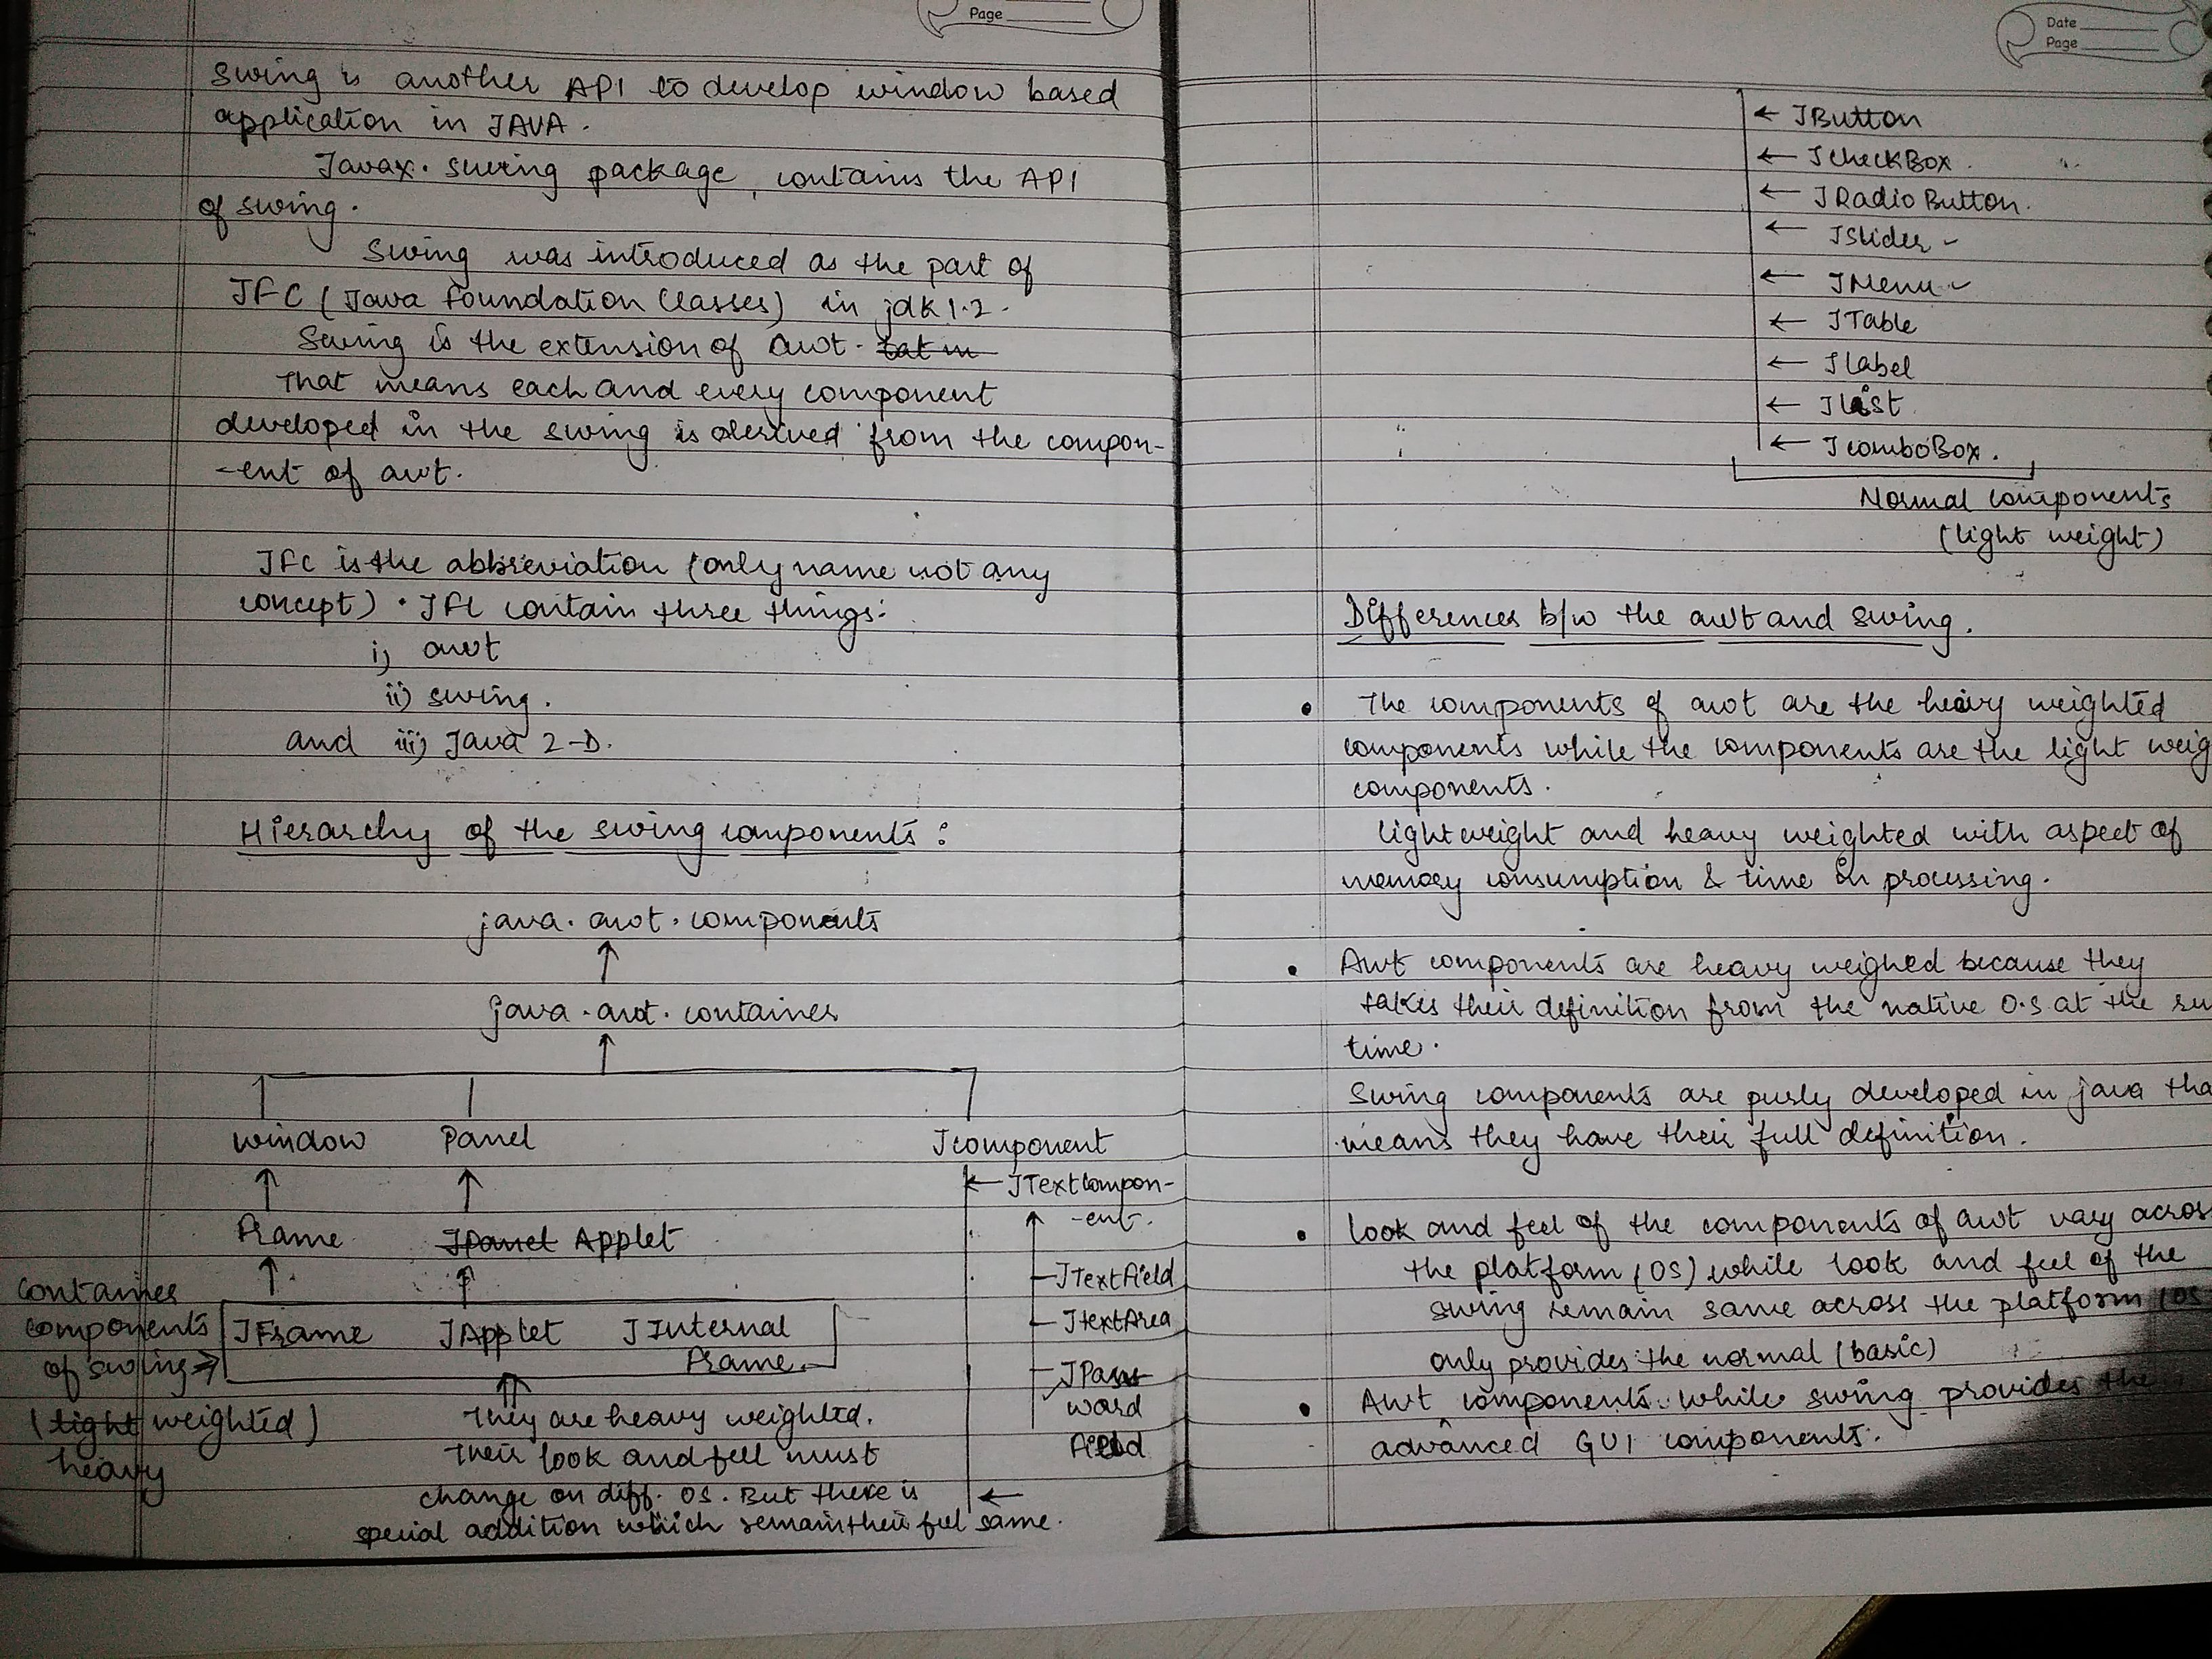 Page
Swing is another API to develop window based
application in JAVA.
Javax. swing package, contains the API
of swing.
Swing was introduced as the part of
JFC (Java Foundation Classes) in jdk 1.2.
Swing is the extension of awt.
That means each and every component
developed in the swing is derived from the compon-
-ent of awt.
JFC is the abbreviation (only name not any
concept). JFC contain three things:
i) awt
ii) swing.
and iii) Java 2-D.
Hierarchy of the swing components:
java. awt. components
java. awt. container
window Panel Jcomponent
JTextcompon-
-ent.
Frame JPanel Applet
JTextField
container
components
of swing
JFrame JApplet JInternal
Frame
JtextArea
JPass
word
Field
(light weighted)
heavy
They are heavy weighted.
Their look and fell must
change on diff. OS. But there is
special addition which remain their feel same.
Date
Page
JButton
JCheckBox.
JRadioButton.
JSlider
JMenu
JTable
Jlabel
Jlist
JcomboBox.
Normal components
(light weight)
Differences b/w the awt and swing.
• The components of awt are the heavy weighted
components while the components are the light weig
components.
lightweight and heavy weighted with aspect of
memory consumption & time in processing.
• Awt components are heavy weighed because they
takes their definition from the native O.S at the
time.
Swing components are purly developed in java tha
means they have their full definition.
• look and feel of the components of awt vary across
the platform (OS) while look and feel of the
swing remain same across the platform (OS
only provides the normal (basic)
• Awt components while swing provides the
advanced GUI components.